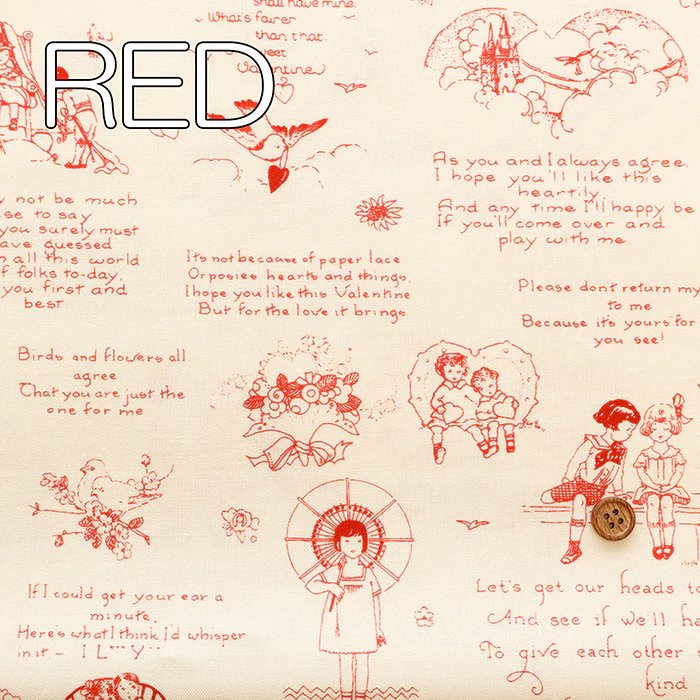 shall have mine.
What's fairer
than that,
Valentine
RED
As you and I always agree,
I hope you'll like this
heartily
And any time I'll happy be
If you'll come over and
play with me.
not be much
to say
you surely must
guessed
all this world
folks to-day,
you first and
best
It's not because of paper lace
Or posies hearts and things,
I hope you like this Valentine
But for the love it brings.
Please don't return my
to me
Because it's yours for
you see!
Birds and flowers all
agree
That you are just the
one for me
If I could get your ear a
minute,
Here's what I think I'd whisper
in it - I L""" Y""
Let's get our heads
And see if we'll
To give each other
kind